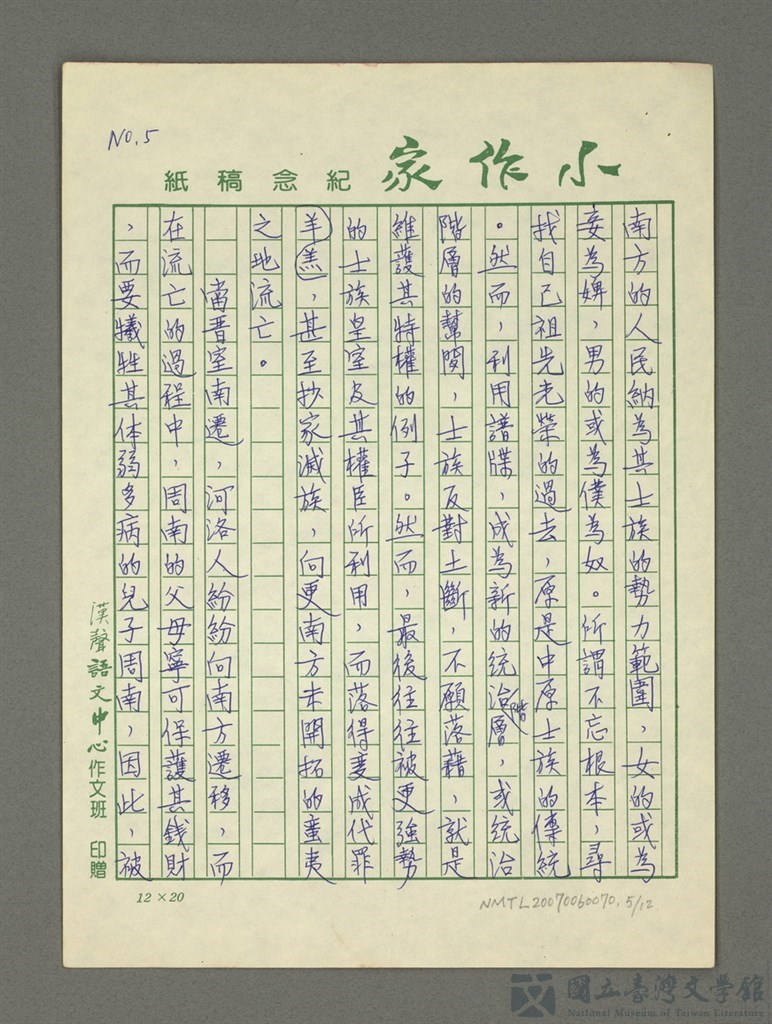 NO.5
小作家
紀念稿紙
南方的人民納為其士族的勢力範圍，女的或為
妾為婢，男的或為僕為奴。所謂不忘根本，尋
找自己祖先光榮的過去，原是中原士族的傳統
。然而，利用譜牒，成為新的統治階層，或統治
階層的幫閒，士族反對土斷，不願落藉，就是
維護其特權的例子。然而，最後往往被更強勢
的士族皇室及其權臣所利用，而落得變成代罪
羊羔，甚至抄家滅族，向更南方未開拓的蛮夷
之地流亡。
當晋室南遷，河洛人紛紛向南方遷移，而
在流亡的過程中，周南的父母寧可保護其錢財
，而要犧牲其体弱多病的兒子周南，因此，被
漢聲語文中心作文班 印贈
12×20
NMTL20070060070, 5/12
國立臺灣文學館
National Museum of Taiwan Literature